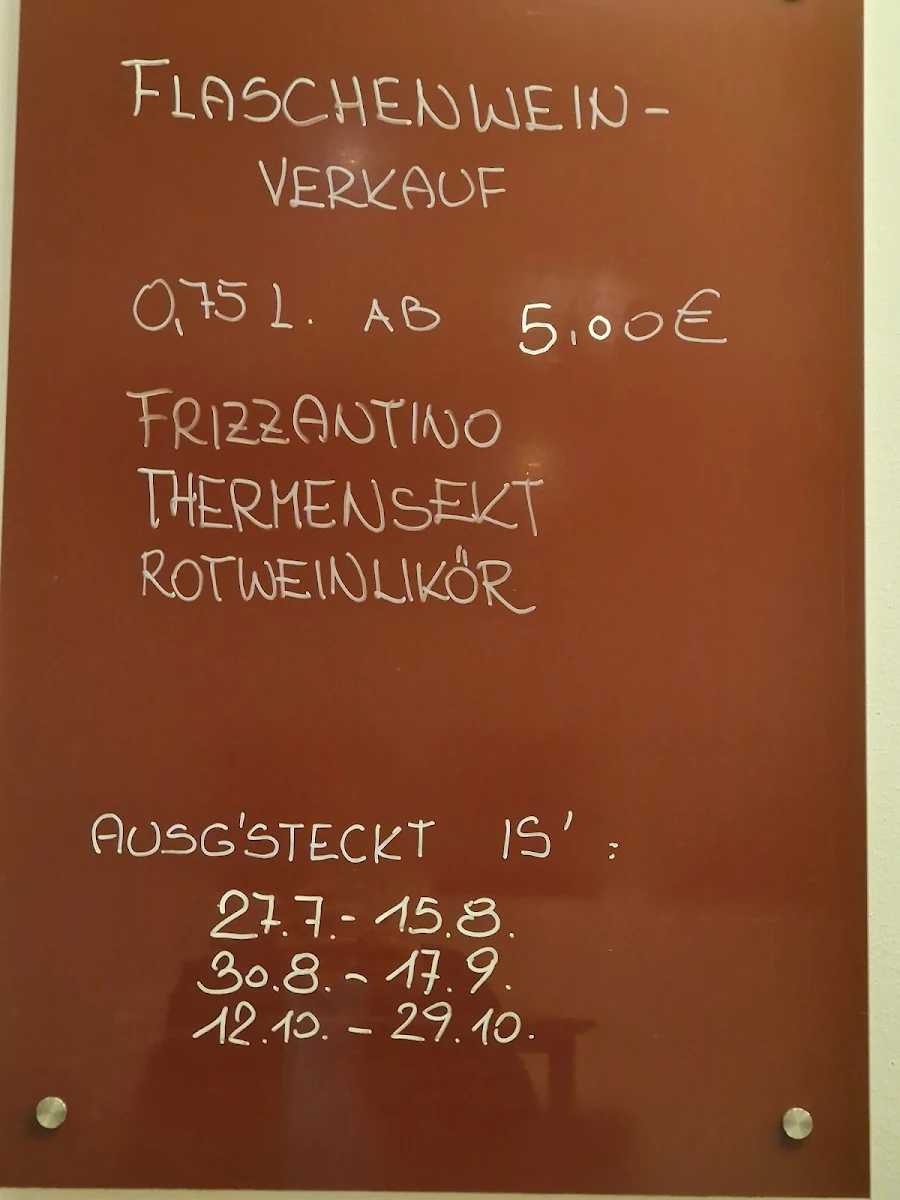 FLASCHENWEIN-
VERKAUF
0,75 L. AB 5,00€
FRIZZANTINO
THERMENSEKT
ROTWEINLIKÖR
AUSG'STECKT IS':
27.7.- 15.8.
30.8. - 17.9.
12.10. - 29.10.